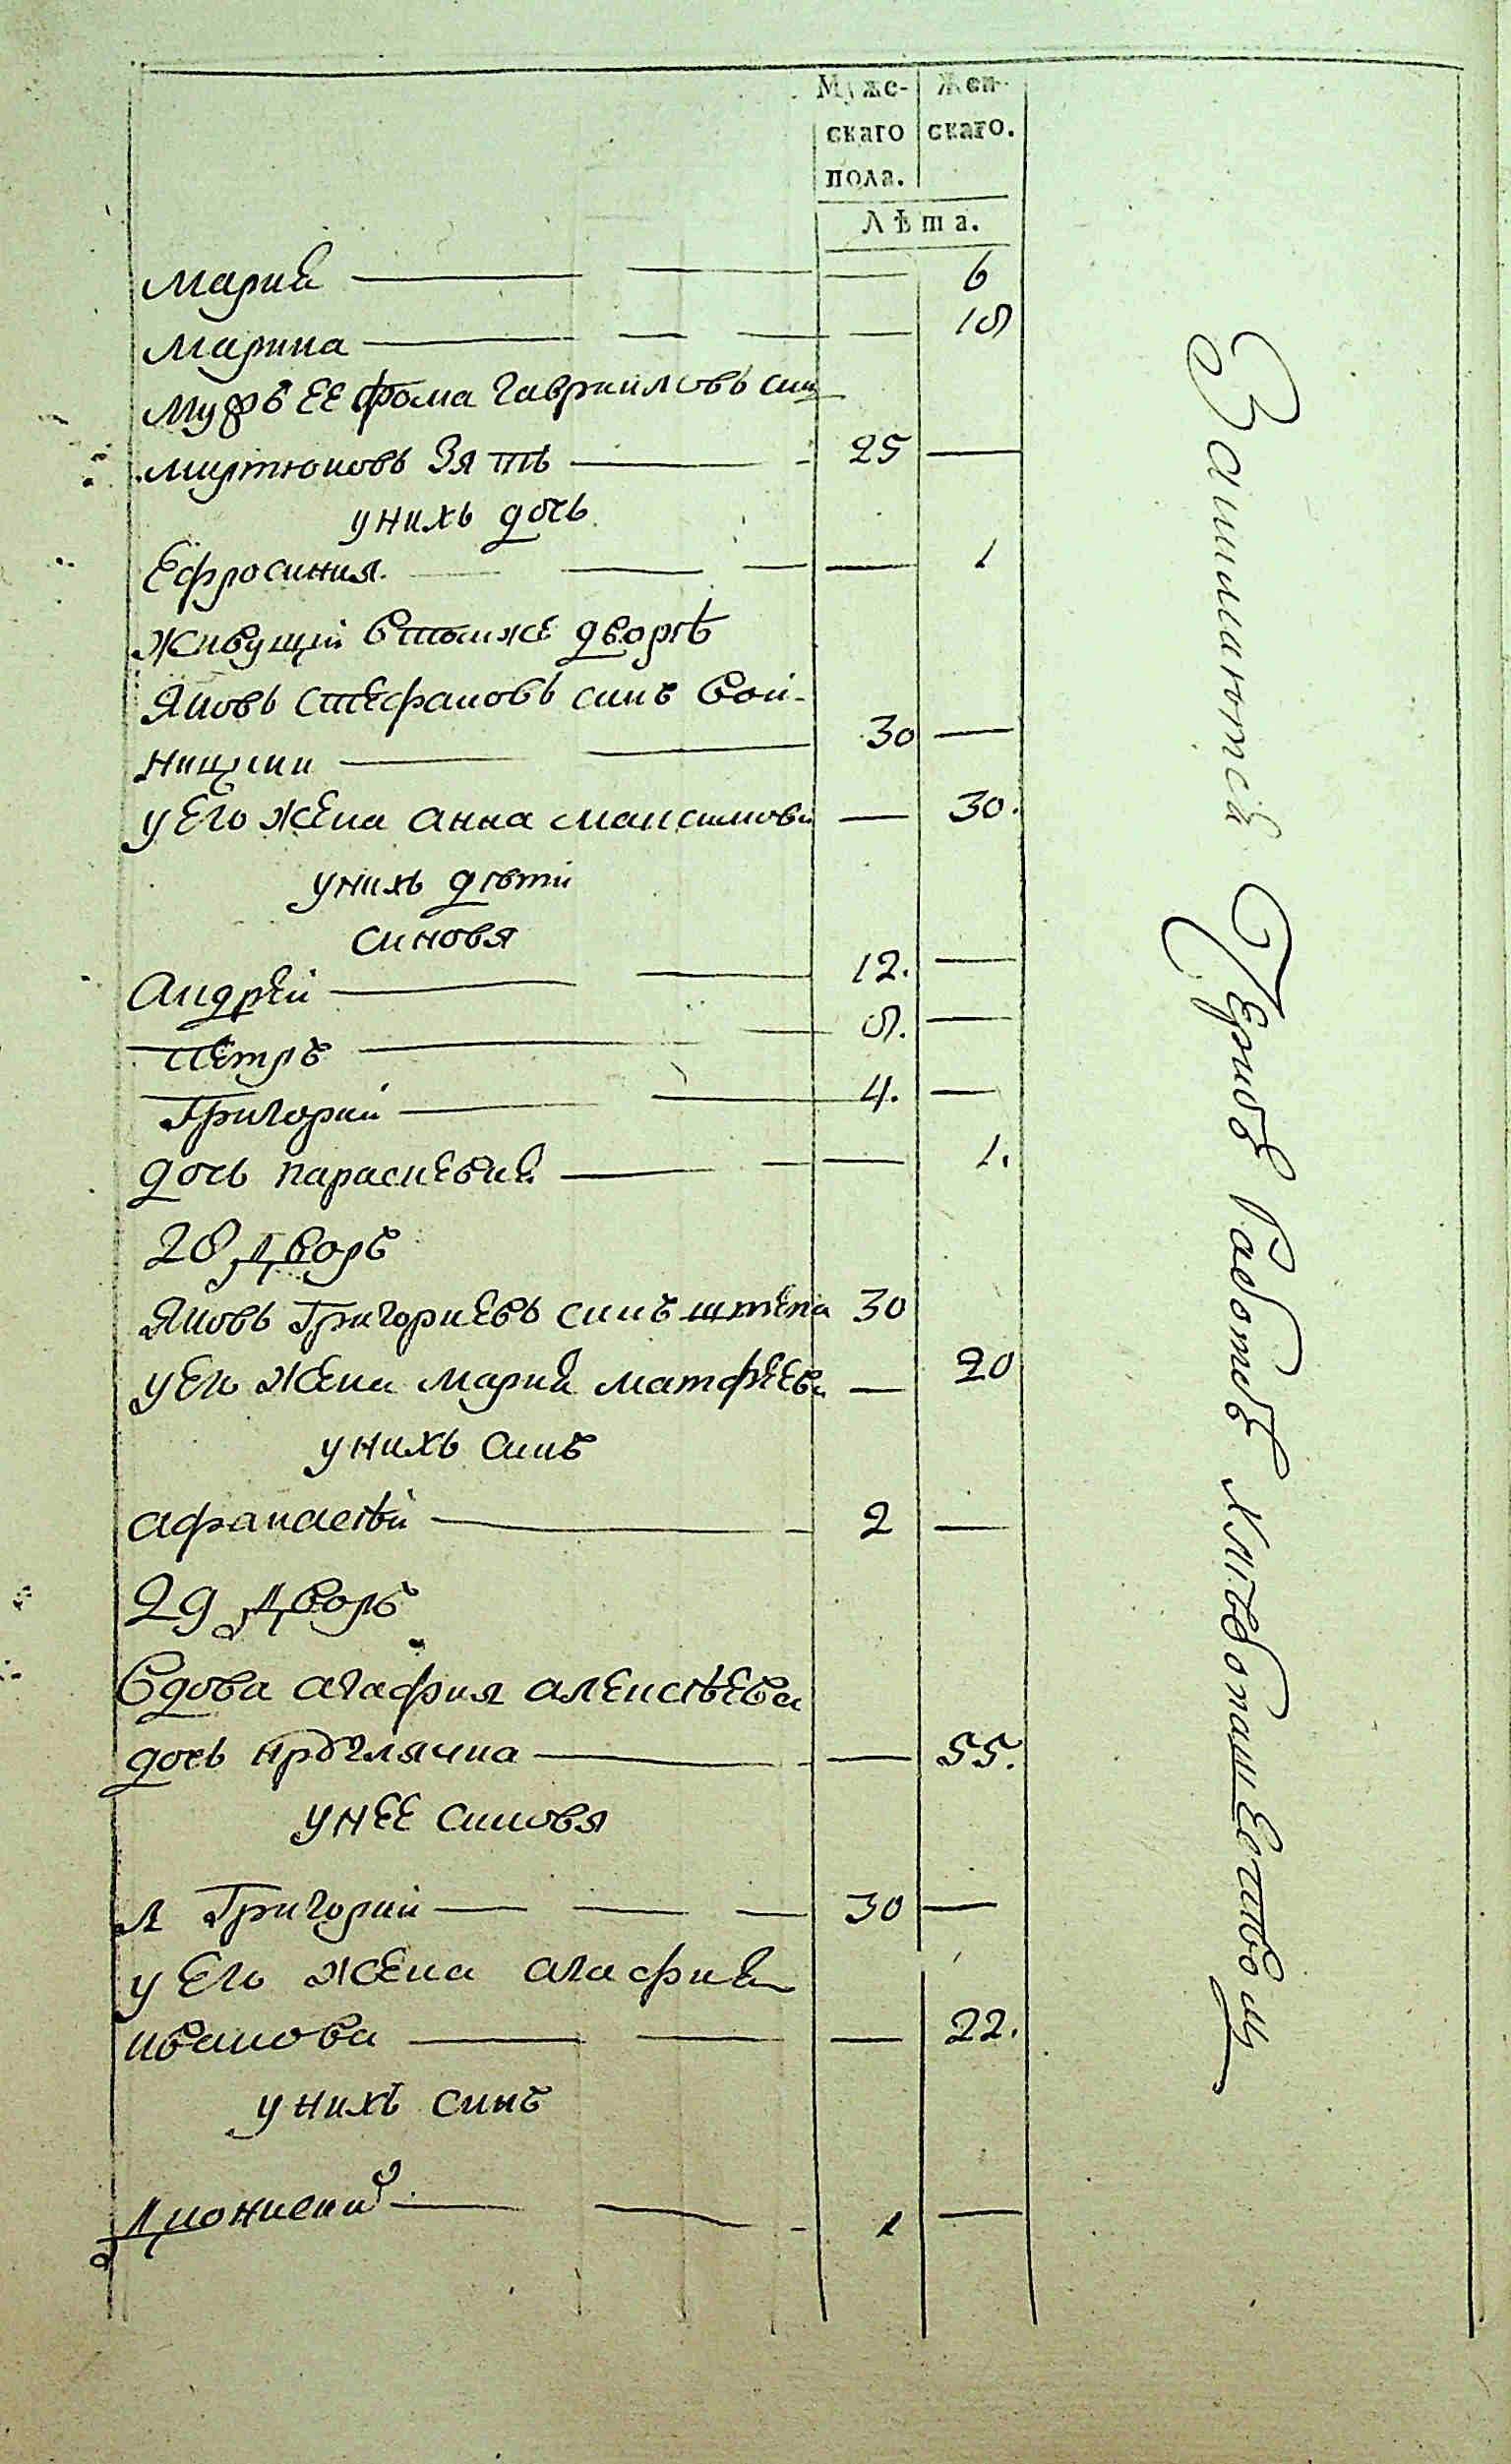 Муже-
скаго
пола.
Жен-
скаго.
Лѣта.
Мария — — — 6
Марина — — — — 18
Мужъ ее Фома Гаврииловъ син
Зять — — 25 —
унихъ дочь
Ефросиния — — — — 1
Живущий втомже дворѣ
Яковъ Стефановъ синъ Вой-
ницкий — — 30 —
у его жена Анна Максимова — 30.
унихъ дѣти
синовя
Андрей — — 12. —
Петръ — — 8. —
Григорий — — 4. —
дочь Параскевия — — — 1.
28 Дворъ
Яковъ Григориевъ синъ Штепа 30
у его жена Мария Матфѣева — 20
унихъ синъ
Афанасѣй — — 2 —
29 Дворъ
Вдова Агафия Алексѣева
дочь — — — 55.
унее синовя
Григорий — — — 30 —
у его жена Агафия
Иванова — — — 22.
унихъ синъ
Дионисий — — — 1 —
Занимаются Черною работою хлѣбопашественною